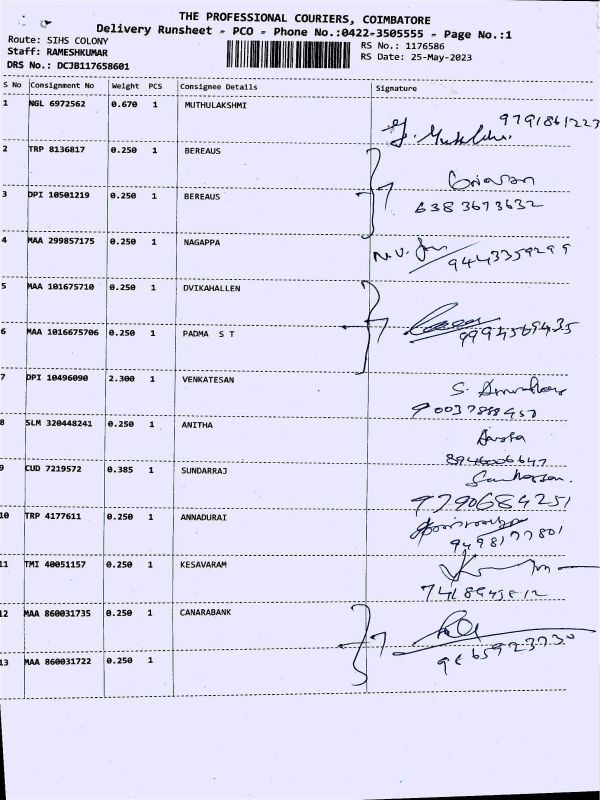 THE PROFESSIONAL COURIERS, COIMBATORE
Delivery Runsheet - PCO - Phone No.:0422-3505555 - Page No.:1
Route: SIHS COLONY
RS No.: 1176586
Staff: RAMESHKUMAR
RS Date: 25-May-2023
DRS No.: DCJB117658601
S No Consignment No Weight PCS Consignee Details Signature
1 NGL 6972562 0.670 1 MUTHULAKSHMI
9791861223
2 TRP 8136817 0.250 1 BEREAUS
3 DPI 10501219 0.250 1 BEREAUS
6383673632
4 MAA 299857175 0.250 1 NAGAPPA
9443359299
5 MAA 101675710 0.250 1 DVIKAHALLEN
6 MAA 1016675706 0.250 1 PADMA S T
9994569435
7 DPI 10496090 2.300 1 VENKATESAN
8 SLM 320448241 0.250 1 ANITHA
9 CUD 7219572 0.385 1 SUNDARRAJ
9790684251
10 TRP 4177611 0.250 1 ANNADURAI
9498177801
11 TMI 40051157 0.250 1 KESAVARAM
12 MAA 860031735 0.250 1 CANARABANK
13 MAA 860031722 0.250 1